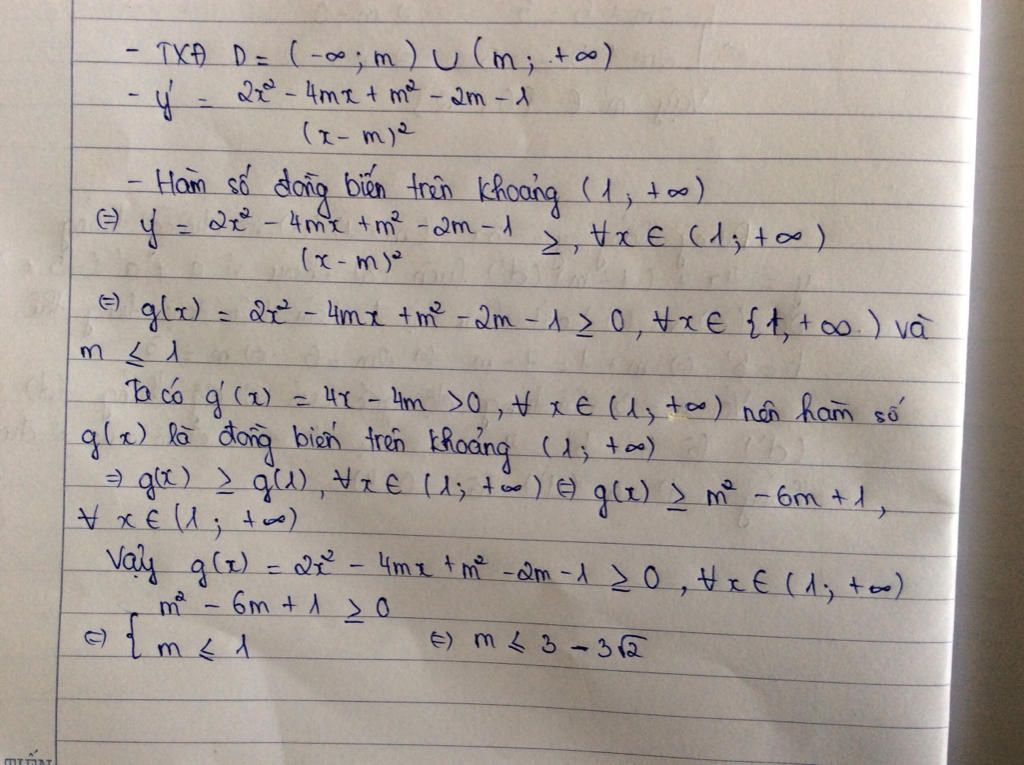 - TXĐ D = (-∞; m) ∪ (m; +∞)
- y' = \frac{2x² - 4mx + m² - 2m - 1}{(x - m)²}
- Hàm số đồng biến trên khoảng (1; +∞)
(=) y' = \frac{2x² - 4mx + m² - 2m - 1}{(x - m)²} ≥, ∀x ∈ (1; +∞)
(=) g(x) = 2x² - 4mx + m² - 2m - 1 ≥ 0, ∀x ∈ {1, +∞) và
m ≤ 1
Ta có g'(x) = 4x - 4m > 0, ∀ x ∈ (1; +∞) nên hàm số
g(x) là đồng biến trên khoảng (1; +∞)
⇒ g(x) ≥ g(1), ∀x ∈ (1; +∞) (=) g(x) ≥ m² - 6m + 1,
∀ x ∈ (1; +∞)
Vậy g(x) = 2x² - 4mx + m² - 2m - 1 ≥ 0, ∀x ∈ (1; +∞)
(=) { m² - 6m + 1 ≥ 0
m ≤ 1 (=) m ≤ 3 - 3√2
TUẤN